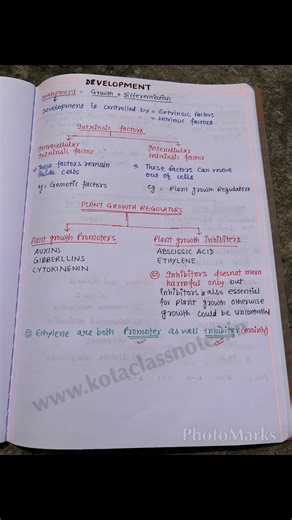 DEVELOPMENT
Development = Growth + Differentiation
Development is controlled by = Extrinsic factors
= Intrinsic factors
Intrinsic factors
Intracellular Intercellular
Intrinsic factor Intrinsic factor
These factors remain These factors can move
inside cells out of cells
eg = Genetic factors Eg = Plant growth Regulators
PLANT GROWTH REGULATORS
Plant growth Promoters Plant growth Inhibitors
AUXINS ABSCISSIC ACID
GIBBERLLINS ETHYLENE
CYTOKINENIN Inhibitors doesnot mean
harmful only but
inhibitors is also essential
for plant growth otherwise
growth could be uncontrolled
Ethylene are both Promoter as well Inhibiter (mainly)
www.kotaclassnote
PhotoMarks